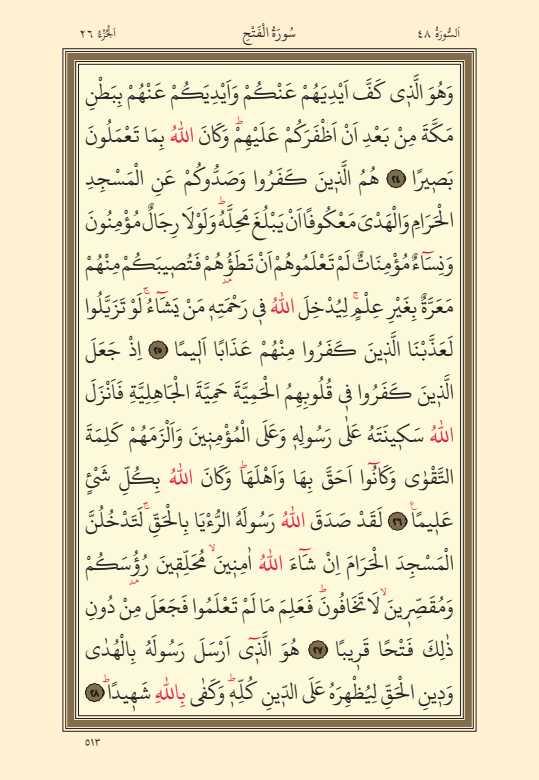 اَلسُّورَةُ ٤٨ سُورَةُ الْفَتْحِ اَلْجُزْءُ ٢٦
وَهُوَ الَّذٖى كَفَّ اَيْدِيَهُمْ عَنْكُمْ وَاَيْدِيَكُمْ عَنْهُمْ بِبَطْنِ
مَكَّةَ مِنْ بَعْدِ اَنْ اَظْفَرَكُمْ عَلَيْهِمْؕ وَكَانَ اللّٰهُ بِمَا تَعْمَلُونَ
بَصٖيرًا ﴿٢٤﴾ هُمُ الَّذٖينَ كَفَرُوا وَصَدُّوكُمْ عَنِ الْمَسْجِدِ
الْحَرَامِ وَالْهَدْىَ مَعْكُوفًا اَنْ يَبْلُغَ مَحِلَّهُؕ وَلَوْلَا رِجَالٌ مُؤْمِنُونَ
وَنِسَٓاءٌ مُؤْمِنَاتٌ لَمْ تَعْلَمُوهُمْ اَنْ تَطَؤُ۫هُمْ فَتُصٖيبَكُمْ مِنْهُمْ
مَعَرَّةٌ بِغَيْرِ عِلْمٍۚ لِيُدْخِلَ اللّٰهُ فٖى رَحْمَتِهٖ مَنْ يَشَٓاءُۚ لَوْ تَزَيَّلُوا
لَعَذَّبْنَا الَّذٖينَ كَفَرُوا مِنْهُمْ عَذَابًا اَلٖيمًا ﴿٢٥﴾ اِذْ جَعَلَ
الَّذٖينَ كَفَرُوا فٖى قُلُوبِهِمُ الْحَمِيَّةَ حَمِيَّةَ الْجَاهِلِيَّةِ فَاَنْزَلَ
اللّٰهُ سَكٖينَتَهُ عَلٰى رَسُولِهٖ وَعَلَى الْمُؤْمِنٖينَ وَاَلْزَمَهُمْ كَلِمَةَ
التَّقْوٰى وَكَانُٓوا اَحَقَّ بِهَا وَاَهْلَهَاؕ وَكَانَ اللّٰهُ بِكُلِّ شَىْءٍ
عَلٖيمًا۟ ﴿٢٦﴾ لَقَدْ صَدَقَ اللّٰهُ رَسُولَهُ الرُّءْيَا بِالْحَقِّۚ لَتَدْخُلُنَّ
الْمَسْجِدَ الْحَرَامَ اِنْ شَٓاءَ اللّٰهُ اٰمِنٖينَۙ مُحَلِّقٖينَ رُؤُ۫سَكُمْ
وَمُقَصِّرٖينَۙ لَا تَخَافُونَؕ فَعَلِمَ مَا لَمْ تَعْلَمُوا فَجَعَلَ مِنْ دُونِ
ذٰلِكَ فَتْحًا قَرٖيبًا ﴿٢٧﴾ هُوَ الَّذٖٓى اَرْسَلَ رَسُولَهُ بِالْهُدٰى
وَدٖينِ الْحَقِّ لِيُظْهِرَهُ عَلَى الدّٖينِ كُلِّهٖؕ وَكَفٰى بِاللّٰهِ شَهٖيدًاؕ ﴿٢٨﴾
٥١٣